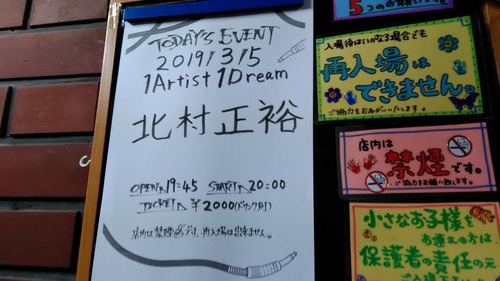 TODAY'S EVENT
2019/3/15
1Artist 1Dream
北村正裕
OPEN 19:45 START 20:00
TICKET ¥2000(ドリンク別)
店内は禁煙です。再入場は出来ません。
5つのお願い
入場後はいかなる場合でも
再入場は
できません。
ご協力をおねがいいたします。
店内は
禁煙です。
ご協力をお願い致します。
小さなお子様を
お連れの方は
保護者の責任の元